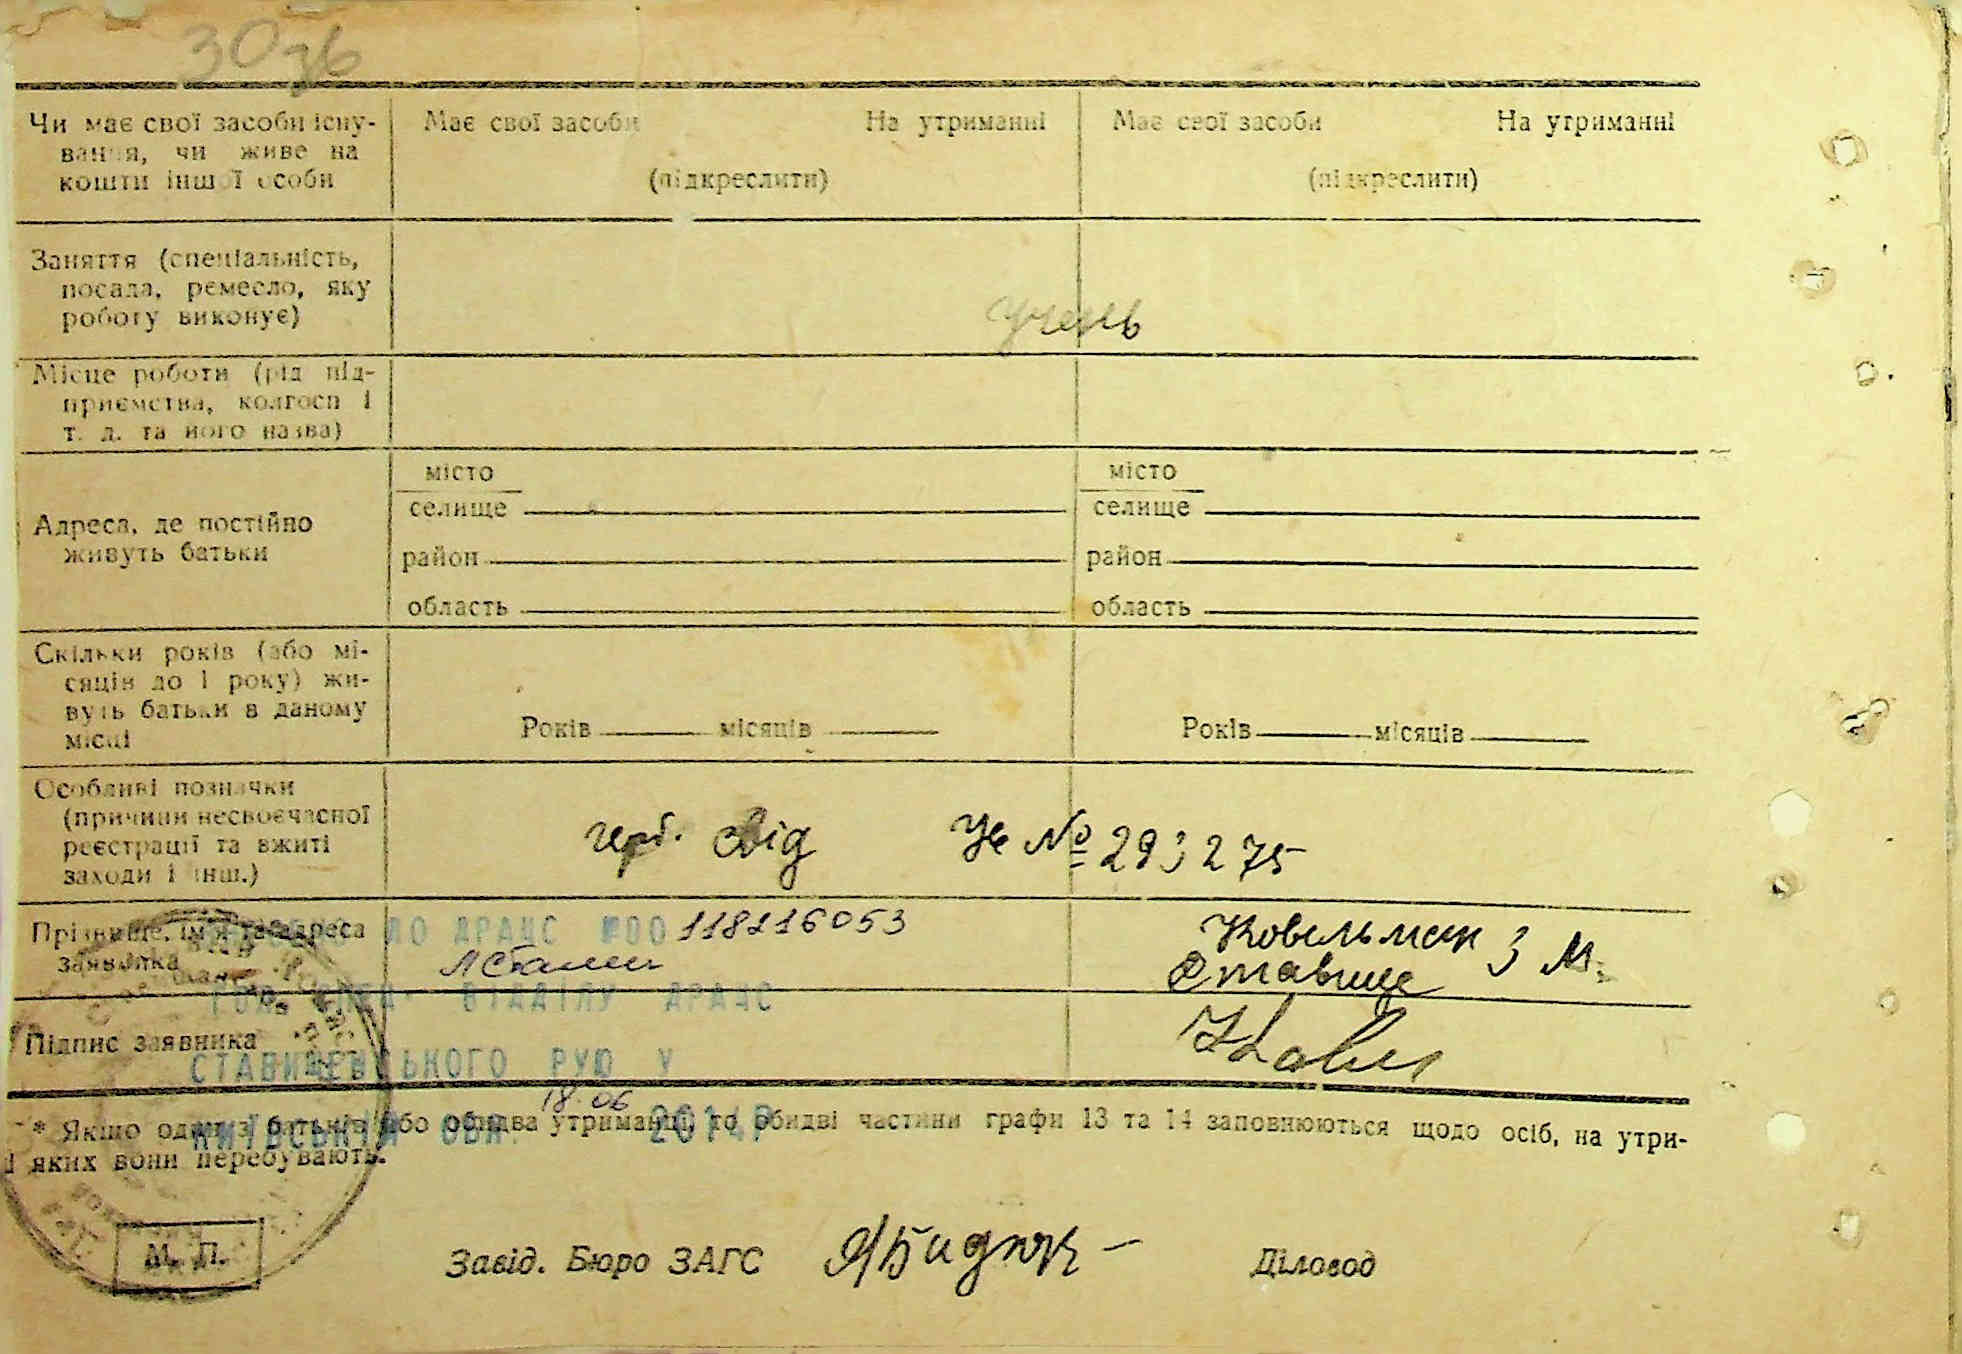 30зв
Чи має свої засоби існу-
вання, чи живе на
кошти іншої особи
Має свої засоби На утриманні
(підкреслити)
Має свої засоби На утриманні
(підкреслити)
Заняття (спеціальність,
посада, ремесло, яку
роботу виконує)
учень
Місце роботи (рід під-
приємства, колгосп і
т. д. та його назва)
Адреса, де постійно
живуть батьки
місто
селище
район
область
місто
селище
район
область
Скільки років (або мі-
сяців до 1 року) жи-
вуть батьки в даному
місці
Років місяців
Років місяців
Особливі позначки
(причини несвоєчасної
реєстрації та вжиті
заходи і інш.)
герб. свід Уе № 293275
Прізвище, ім'я та адреса
заявника
ДО ДРАЦС №00 118216053
Ковельман З М.
Ставище
ВІДДІЛУ ДРАЦС
Підпис заявника
Ковел
СТАВИЩЕНСЬКОГО РУЮ У
18.06
КИЇВСЬКІЙ ОБЛ. 2014Р
* Якщо один з батьків або обидва утриманці, то обидві частини графи 13 та 14 заповнюються щодо осіб, на утри-
яких вони перебувають.
М. П.
Завід. Бюро ЗАГС
Діловод